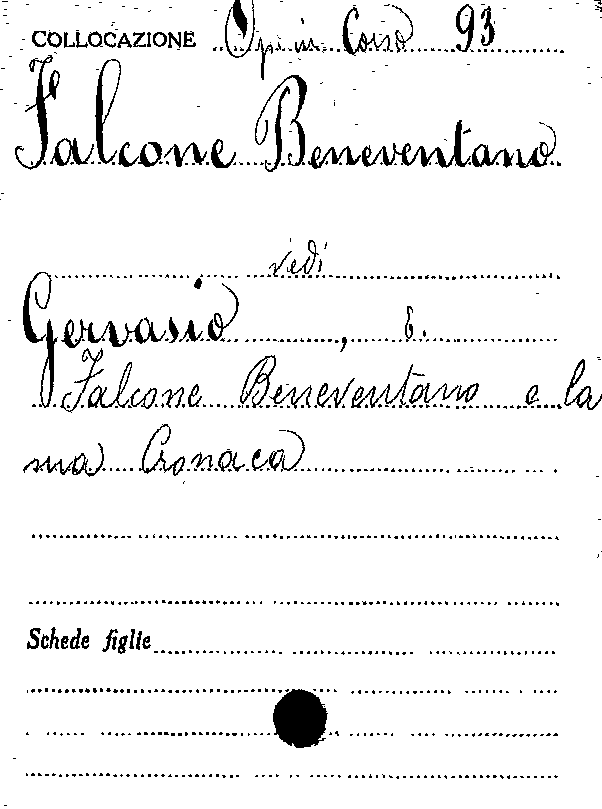 COLLOCAZIONE Op. in Corso 93
Falcone Beneventano
vedi
Gervasio, E.
Falcone Beneventano e la
sua Cronaca
Schede figlie